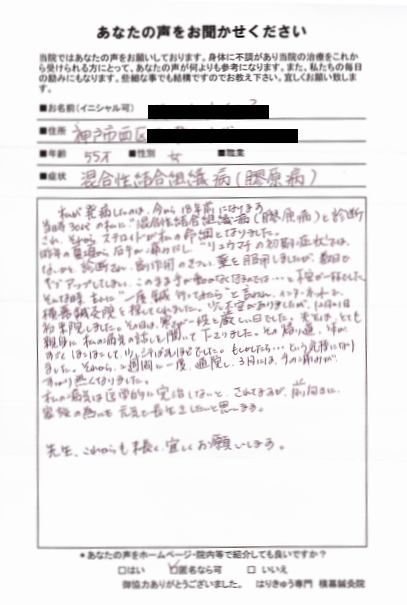 あなたの声をお聞かせください
当院ではあなたの声をお願いしております。身体に不調があり当院の治療をこれか
ら受けられる方にとって、あなたの声が何よりも参考になります。また、私たちの毎日
の励みにもなります。些細な事でも結構ですのでお教え下さい。宜しくお願い致しま
す。
■お名前(イニシャル可)
■住所 神戸市西区
■年齢 55才 ■性別 女 ■職業
■症状 混合性結合組織病(膠原病)
私が発病したのは、今から18年前になります。
当時30代の私に"混合性結合組織病(膠原病)と診断
され、それから ステロイドが私の命綱となりました。
昨年の夏頃から 右手が痛みだし "リュウマチの初期症状では
ないかと 診断され、副作用のきつい 薬を服用しましたが、数値が
アップしてしまい、このまま手が動かなくなるのでは…と不安が
そんな時、主人に"一度 鍼 行ってみたら"と言われ、インターネットで、
横幕鍼灸院を探してくれました。少し不安がありましたが、12月の1日
初来院しました。その日は、寒さが一段と厳しい日でした。先生は、とても
親身に 私の病気の話しを聞いて下さりました。その帰り道、体が
すごくぽかぽかして、 もしかしたら…という気持になり
ました。それから、2週間に一度、通院し、3月には、手の痛みが
すっかり無くなりました。
私の病気は医学的に完治しないと、されてますが、前向きに、
家族の為にも 元気で長生きしたいと思います。
先生、これからも末長く、宜しくお願いします。
*あなたの声をホームページ・院内等で紹介しても良いですか?
□はい □匿名なら可 □いいえ
御協力ありがとうございました。 はりきゅう専門 横幕鍼灸院